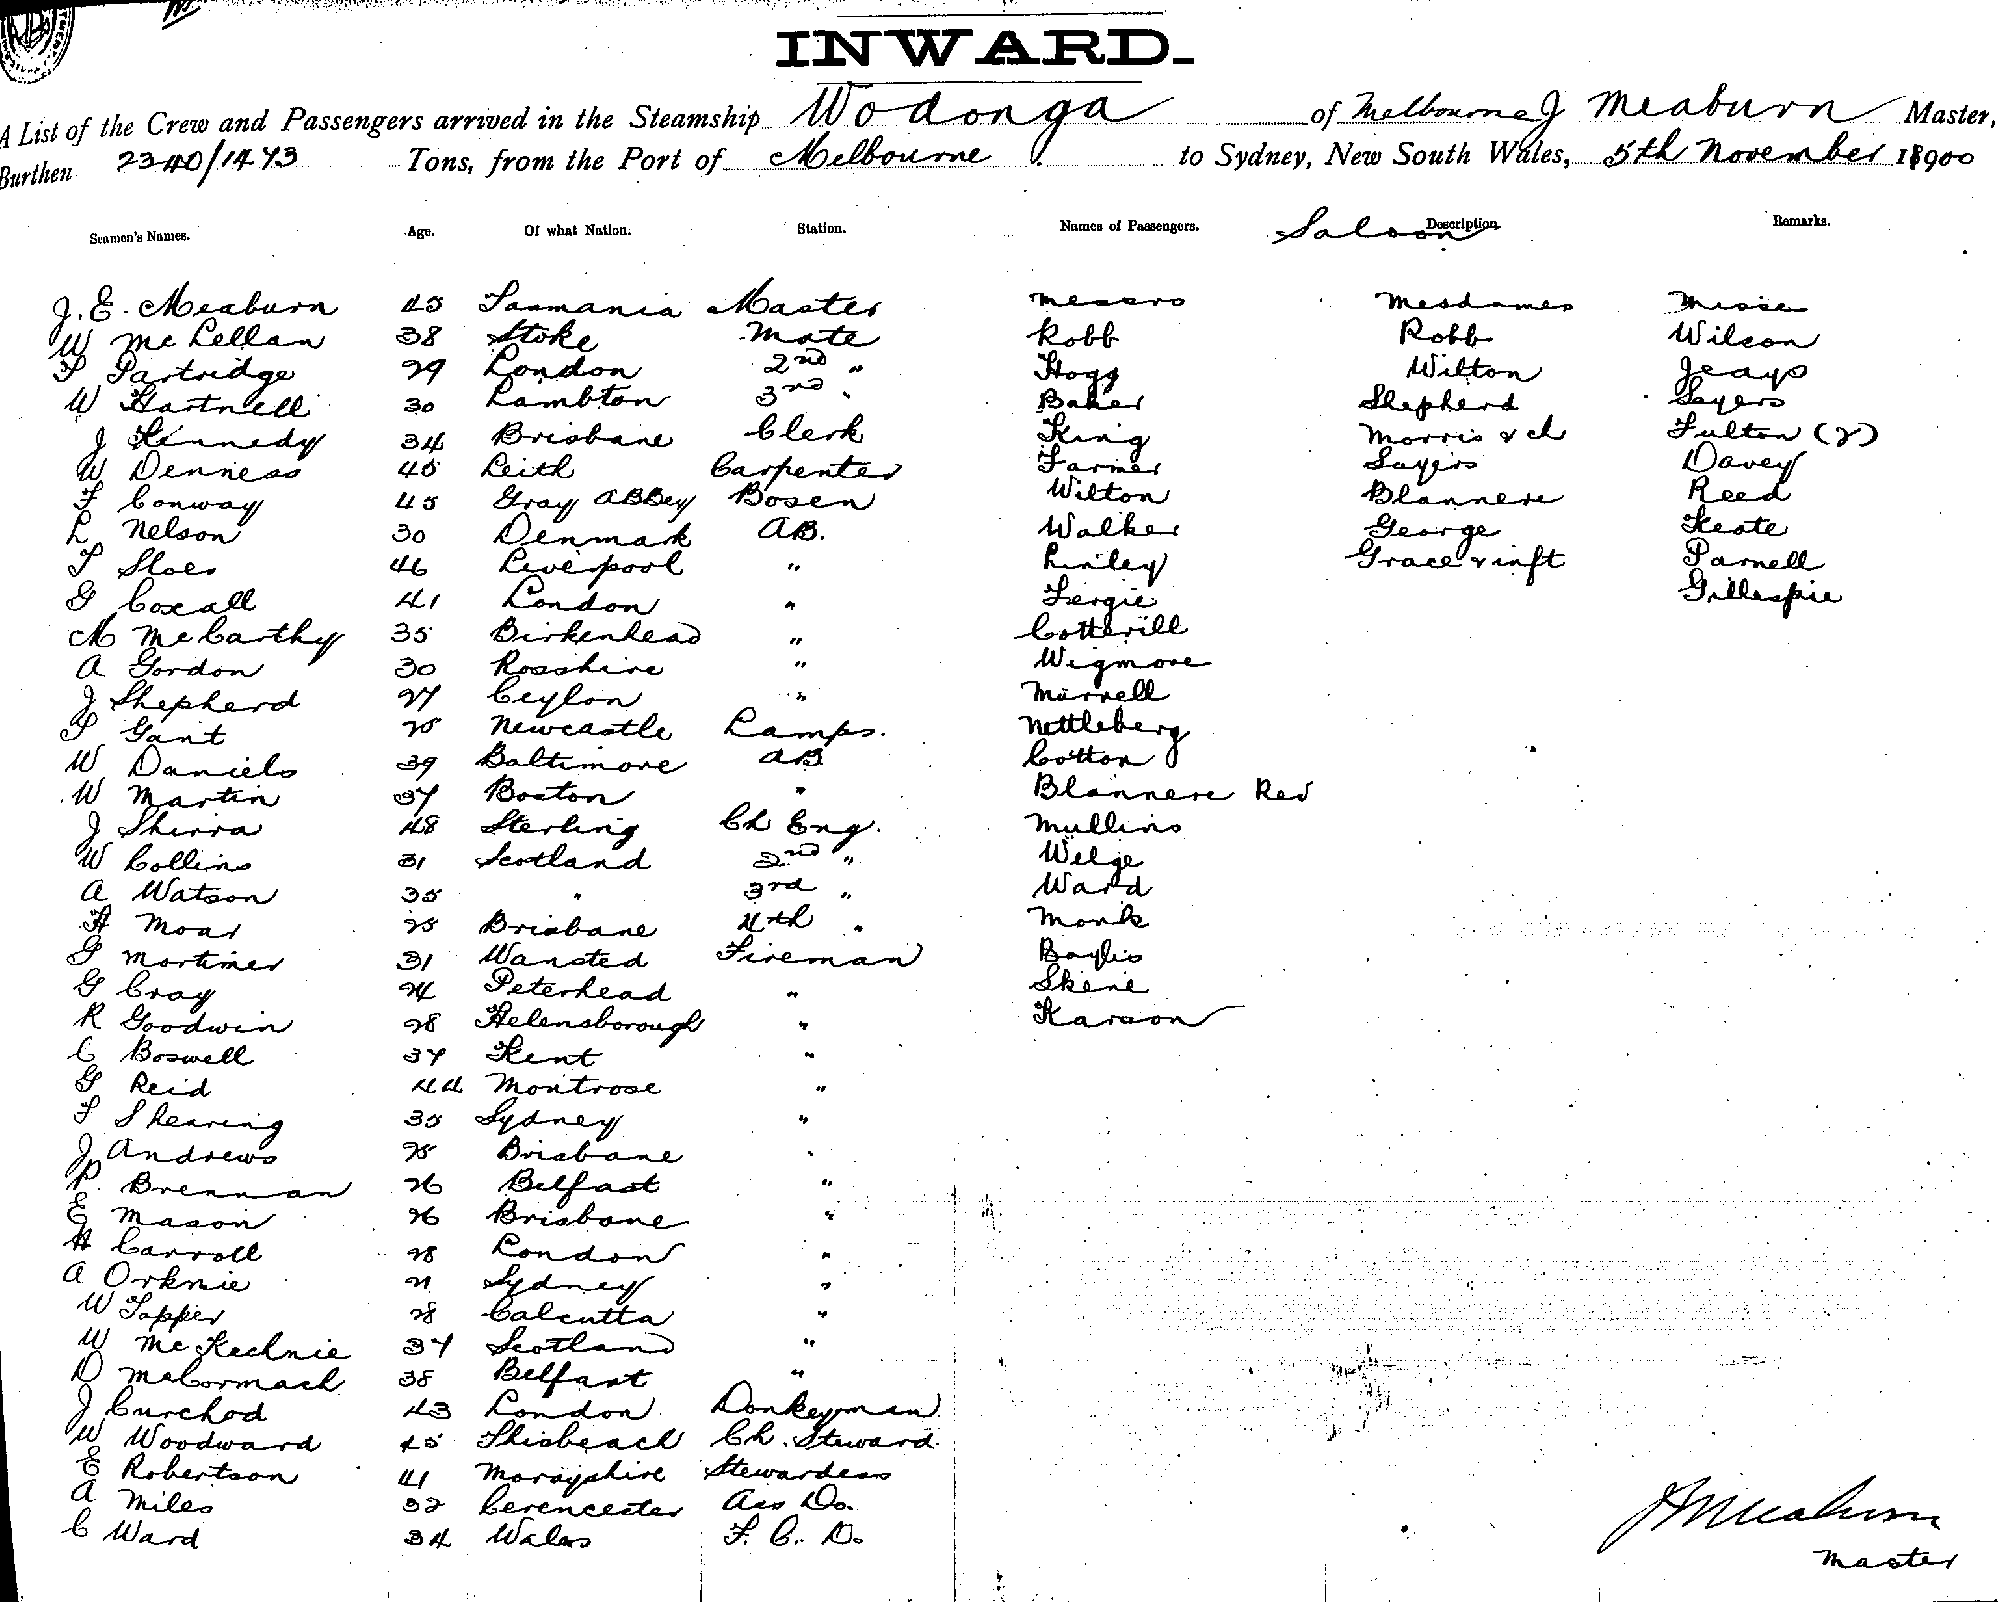 INWARD.
A List of the Crew and Passengers arrived in the Steamship Wodonga of Melbourne J Meaburn Master,
Burthen 2340/1473 Tons, from the Port of Melbourne to Sydney, New South Wales, 5th November 1900
Seamen's Names. Age. Of what Nation. Station. Names of Passengers. Saloon Description. Remarks.
J. E. Meaburn 45 Tasmania Master Messrs Mesdames Misses
W McLellan 38 Stoke Mate Robb Robb Wilson
P Partridge 29 London 2nd " Hogg Wilton Jeays
W Hartnell 30 Lambton 3rd " Baker Shepherd Sayers
J Kennedy 34 Brisbane Clerk King Morris & ch Fulton (2)
W Denness 45 Leith Carpenter Farmer Sayers Davey
F Conway 45 Gray Abbey Bosen Wilton Blannere Reed
L Nelson 30 Denmark AB. Walker George Keate
T Sloes 46 Liverpool " Linley Grace & inft Parnell
G Coxall 41 London " Fergie Gillespie
M McCarthy 35 Birkenhead " Cotterill
A Gordon 30 Rosshire " Wigmore
J Shepherd 27 Ceylon " Marrell
P Gant 25 Newcastle Lamps. Nettleberg
W Daniels 39 Baltimore AB Cotton
W Martin 37 Boston " Blannere Rev
J Shirra 48 Sterling Ch Eng. Mullins
W Collins 31 Scotland 2nd " Welge
A Watson 35 " 3rd " Ward
H Moar 25 Brisbane 4th " Monk
G Mortimer 31 Wansted Fireman Baylis
G Cray 24 Peterhead " Skene
R Goodwin 28 Helensborough " Karoon
C Boswell 37 Kent "
G Reid 44 Montrose "
F Shearing 35 Sydney "
J Andrews 25 Brisbane "
P. Brennan 26 Belfast "
E Mason 26 Brisbane "
H Carroll 28 London "
A Orknie 21 Sydney "
W Tapper 28 Calcutta "
W McKechnie 37 Scotland "
D McCormack 38 Belfast "
J Curchod 43 London Donkeyman
W Woodward 45 Shisbeach Ch. Steward
E Robertson 41 Morayshire Stewardess
A Miles 32 Cerencester Ass Do.
C Ward 34 Wales F. C. Do.
J Meaburn
Master